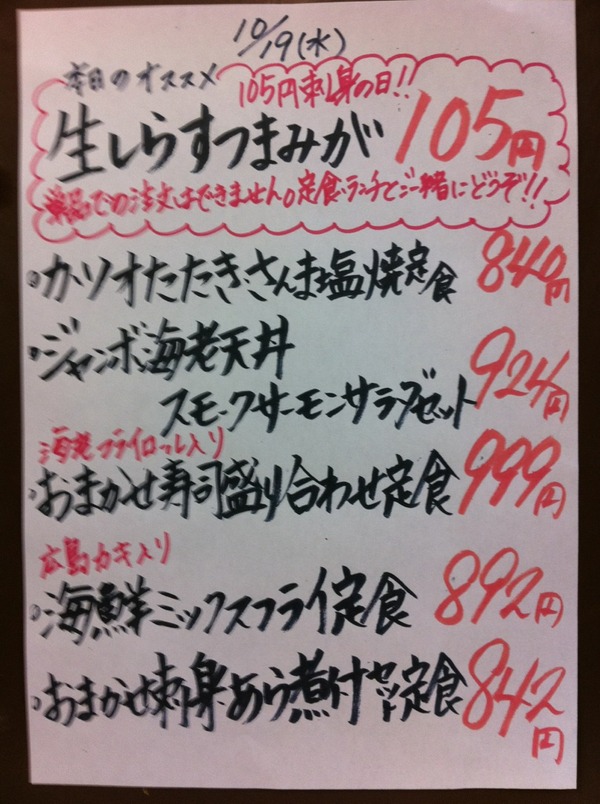 10/19(水)
本日のオススメ
105円刺身の日!!
生しらすつまみが 105円
単品での注文はできません。定食、ランチとご一緒にどうぞ!!
・カツオたたき、さんま塩焼定食 840円
・ジャンボ海老天丼
スモークサーモンサラダセット 924円
海老フライロール入り
・おまかせ寿司盛り合わせ定食 999円
広島カキ入り
・海鮮ミックスフライ定食 892円
・おまかせ刺身、あら煮付セット定食 842円